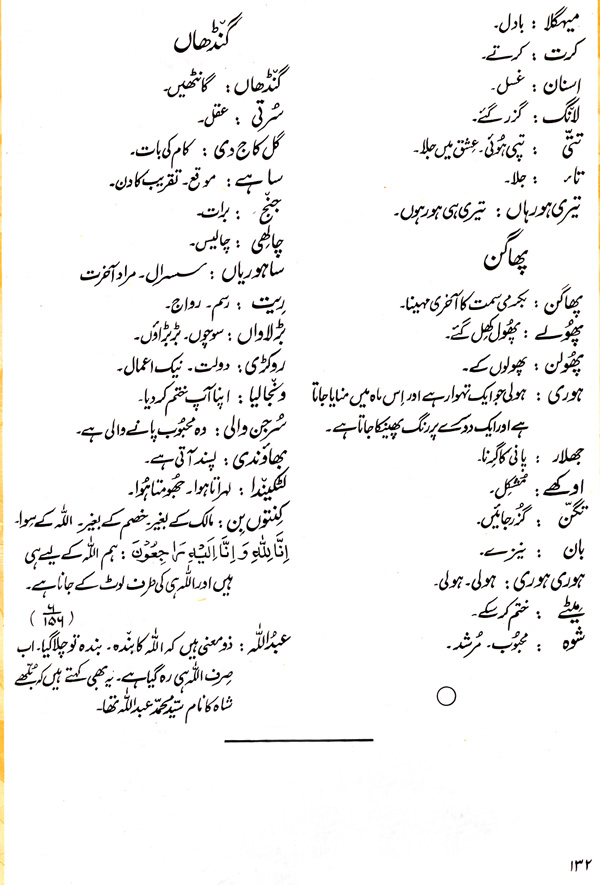 میہگلا : بادل۔
کرت : کرتے۔
اسنان : غسل۔
لانگ : گزر گئے۔
تتّی : تپی ہُوئی۔ عِشق میں جلا۔
تاء : جلا۔
تیری ہور ہاں : تیری ہی ہو رہوں۔
پھاگن
پھاگن : بکرمی سمت کا آخری مہینا۔
پھُولے : پھُول کھِل گئے۔
پھُولن : پھولوں کے۔
ہوری : ہولی جو ایک تہوار ہے اور اِس ماہ میں منایا جاتا
ہے اور ایک دوسرے پر رنگ پھینکا جاتا ہے۔
جھلار : پانی کا گِرنا۔
اوکھے : مُشکِل۔
تگنّ : گُزر جائیں۔
بان : نیزے۔
ہوری ہوری : ہولی۔ ہولی۔
میٹے : ختم کر سکے۔
شوہ : محبُوب۔ مُرشد۔
گنّڈھاں
گنّڈھاں : گانٹھیں۔
سُرتی : عقل۔
گل کاج دی : کام کی بات۔
ساہے : موقع۔ تقریب کا دن۔
جنّج : برات۔
چالھی : چالیس۔
ساہوریاں : سسرال۔ مراد آخرت
رِیت : رسم۔ رواج۔
بڑلاواں : سوچوں۔ بڑبڑاؤں۔
روکڑی : دولت۔ نیک اعمال۔
ونجالیا : اپنا آپ ختم کر دیا۔
سُرجن والی : وہ محبُوب پانے والی ہے۔
بھاوَندی : پسند آتی ہے۔
لشکیندا : لہراتا ہوا۔ جھُومتا ہُوا۔
کِنتوں بِن : مالک کے بغیر۔ خصم کے بغیر۔ اللہ کے سِوا۔
اِنَّا لِلّٰهِ وَ اِنَّآ اِلَيْهِ رَاجِعُوْنَ : ہم اللہ کے لیے ہی
ہیں اور اللہ ہی کی طرف لوٹ کے جانا ہے۔
(۲/۱۵۶)
عبدُاللہ : دو معنی ہیں کہ اللہ کا بندہ۔ بندہ تو چلا گیا۔ اب
صِرف اللہ ہی رہ گیا ہے۔ یہ بھی کہتے ہیں کہ بُلّھے
شاہ کا نام سیّد محمّد عبداللہ تھا۔
۱۳۲